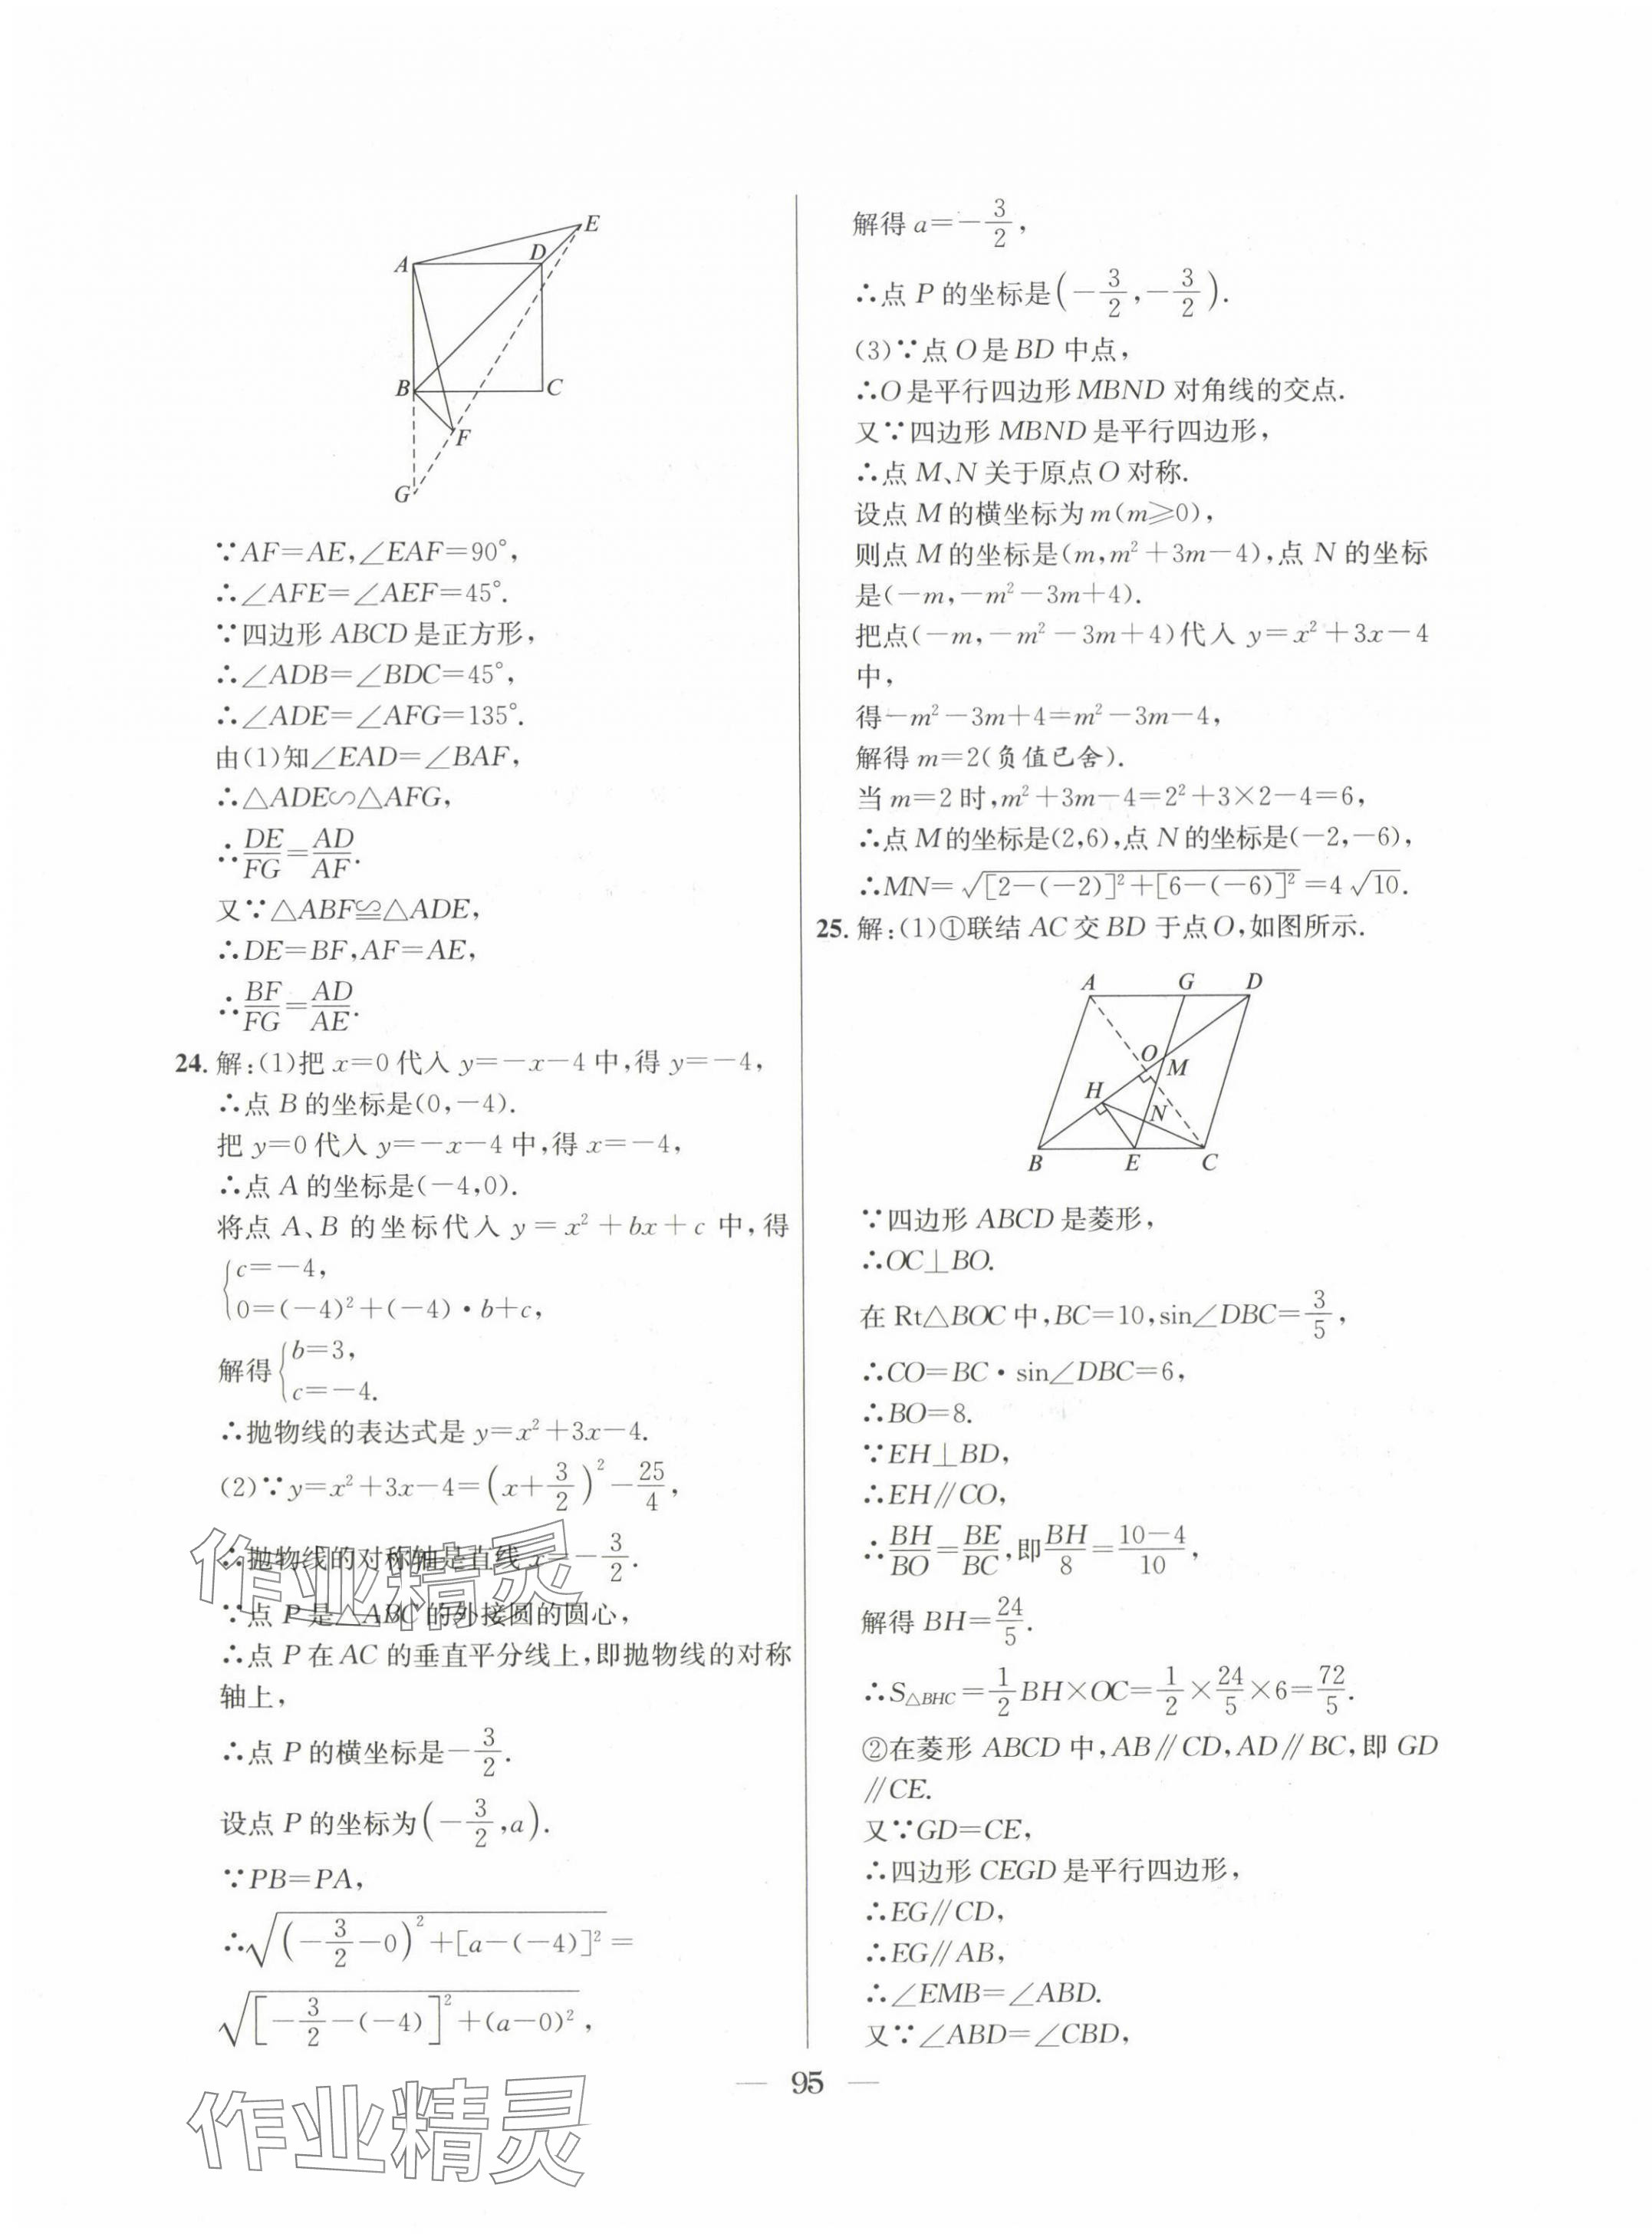 E
D
A
B
C
F
G
∵AF=AE,∠EAF=90°,
∴∠AFE=∠AEF=45°.
∵四边形 ABCD 是正方形,
∴∠ADB=∠BDC=45°,
∴∠ADE=∠AFG=135°.
由(1)知∠EAD=∠BAF,
∴△ADE∽△AFG,
∴DE/FG=AD/AF.
又∵△ABF≌△ADE,
∴DE=BF,AF=AE,
∴BF/FG=AD/AE.
24. 解:(1)把 x=0 代入 y=-x-4 中,得 y=-4,
∴点 B 的坐标是(0,-4).
把 y=0 代入 y=-x-4 中,得 x=-4,
∴点 A 的坐标是(-4,0).
将点 A、B 的坐标代入 y=x²+bx+c 中,得
{c=-4,
0=(-4)²+(-4)·b+c,
解得{b=3,
c=-4.
∴抛物线的表达式是 y=x²+3x-4.
(2)∵y=x²+3x-4=(x+3/2)²-25/4,
∴抛物线的对称轴是直线 x=-3/2.
∵点 P 是△ABC 的外接圆的圆心,
∴点 P 在 AC 的垂直平分线上,即抛物线的对称
轴上,
∴点 P 的横坐标是-3/2.
设点 P 的坐标为(-3/2,a).
∵PB=PA,
∴√((-3/2-0)²+[a-(-4)]²)=
√([-3/2-(-4)]²+(a-0)²),
解得 a=-3/2,
∴点 P 的坐标是(-3/2,-3/2).
(3)∵点 O 是 BD 中点,
∴O 是平行四边形 MBND 对角线的交点.
又∵四边形 MBND 是平行四边形,
∴点 M、N 关于原点 O 对称.
设点 M 的横坐标为 m(m≥0),
则点 M 的坐标是(m,m²+3m-4),点 N 的坐标
是(-m,-m²-3m+4).
把点(-m,-m²-3m+4)代入 y=x²+3x-4
中,
得-m²-3m+4=m²-3m-4,
解得 m=2(负值已舍).
当 m=2 时,m²+3m-4=2²+3×2-4=6,
∴点 M 的坐标是(2,6),点 N 的坐标是(-2,-6),
∴MN=√([2-(-2)]²+[6-(-6)]²)=4√10.
25. 解:(1)①联结 AC 交 BD 于点 O,如图所示.
A G D
O
M
H
N
B E C
∵四边形 ABCD 是菱形,
∴OC⊥BO.
在 Rt△BOC 中,BC=10,sin∠DBC=3/5,
∴CO=BC·sin∠DBC=6,
∴BO=8.
∵EH⊥BD,
∴EH∥CO,
∴BH/BO=BE/BC,即BH/8=(10-4)/10,
解得 BH=24/5.
∴S△BHC=1/2BH×OC=1/2×24/5×6=72/5.
②在菱形 ABCD 中,AB∥CD,AD∥BC,即 GD
∥CE.
又∵GD=CE,
∴四边形 CEGD 是平行四边形,
∴EG∥CD,
∴EG∥AB,
∴∠EMB=∠ABD.
又∵∠ABD=∠CBD,
— 95 —
作业精灵
作业精灵